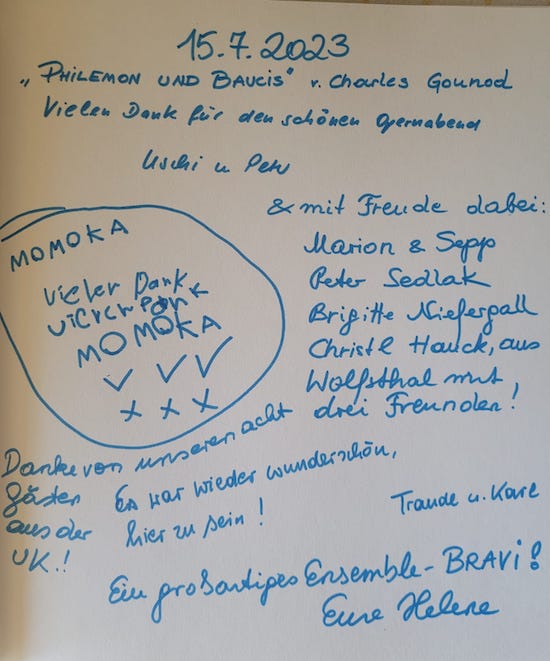 15.7.2023
„PHILEMON UND BAUCIS" v. Charles Gounod
Vielen Dank für den schönen Opernabend
Uschi u Peter
& mit Freude dabei:
Marion & Sepp
Peter Sedlak
Brigitte Niefergall
Christl Hauck, aus
Wolfsthal mit
drei Freunden!
MOMOKA
Vieler Dank
MOMOKA
Danke von unseren acht
Gästen
aus der
UK!
Es war wieder wunderschön,
hier zu sein!
Traude u. Karl
Ein großartiges Ensemble - BRAVI!
Eure Helene